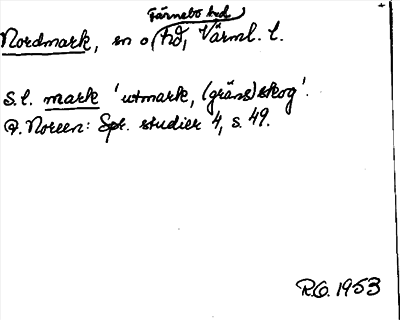 Färnebo hd
Nordmark, sn o hd, Värml. l.
S. l. mark 'utmark, (gräns)skog'.
A. Noreen: Spr. studier 4, s. 49.
R.O. 1953